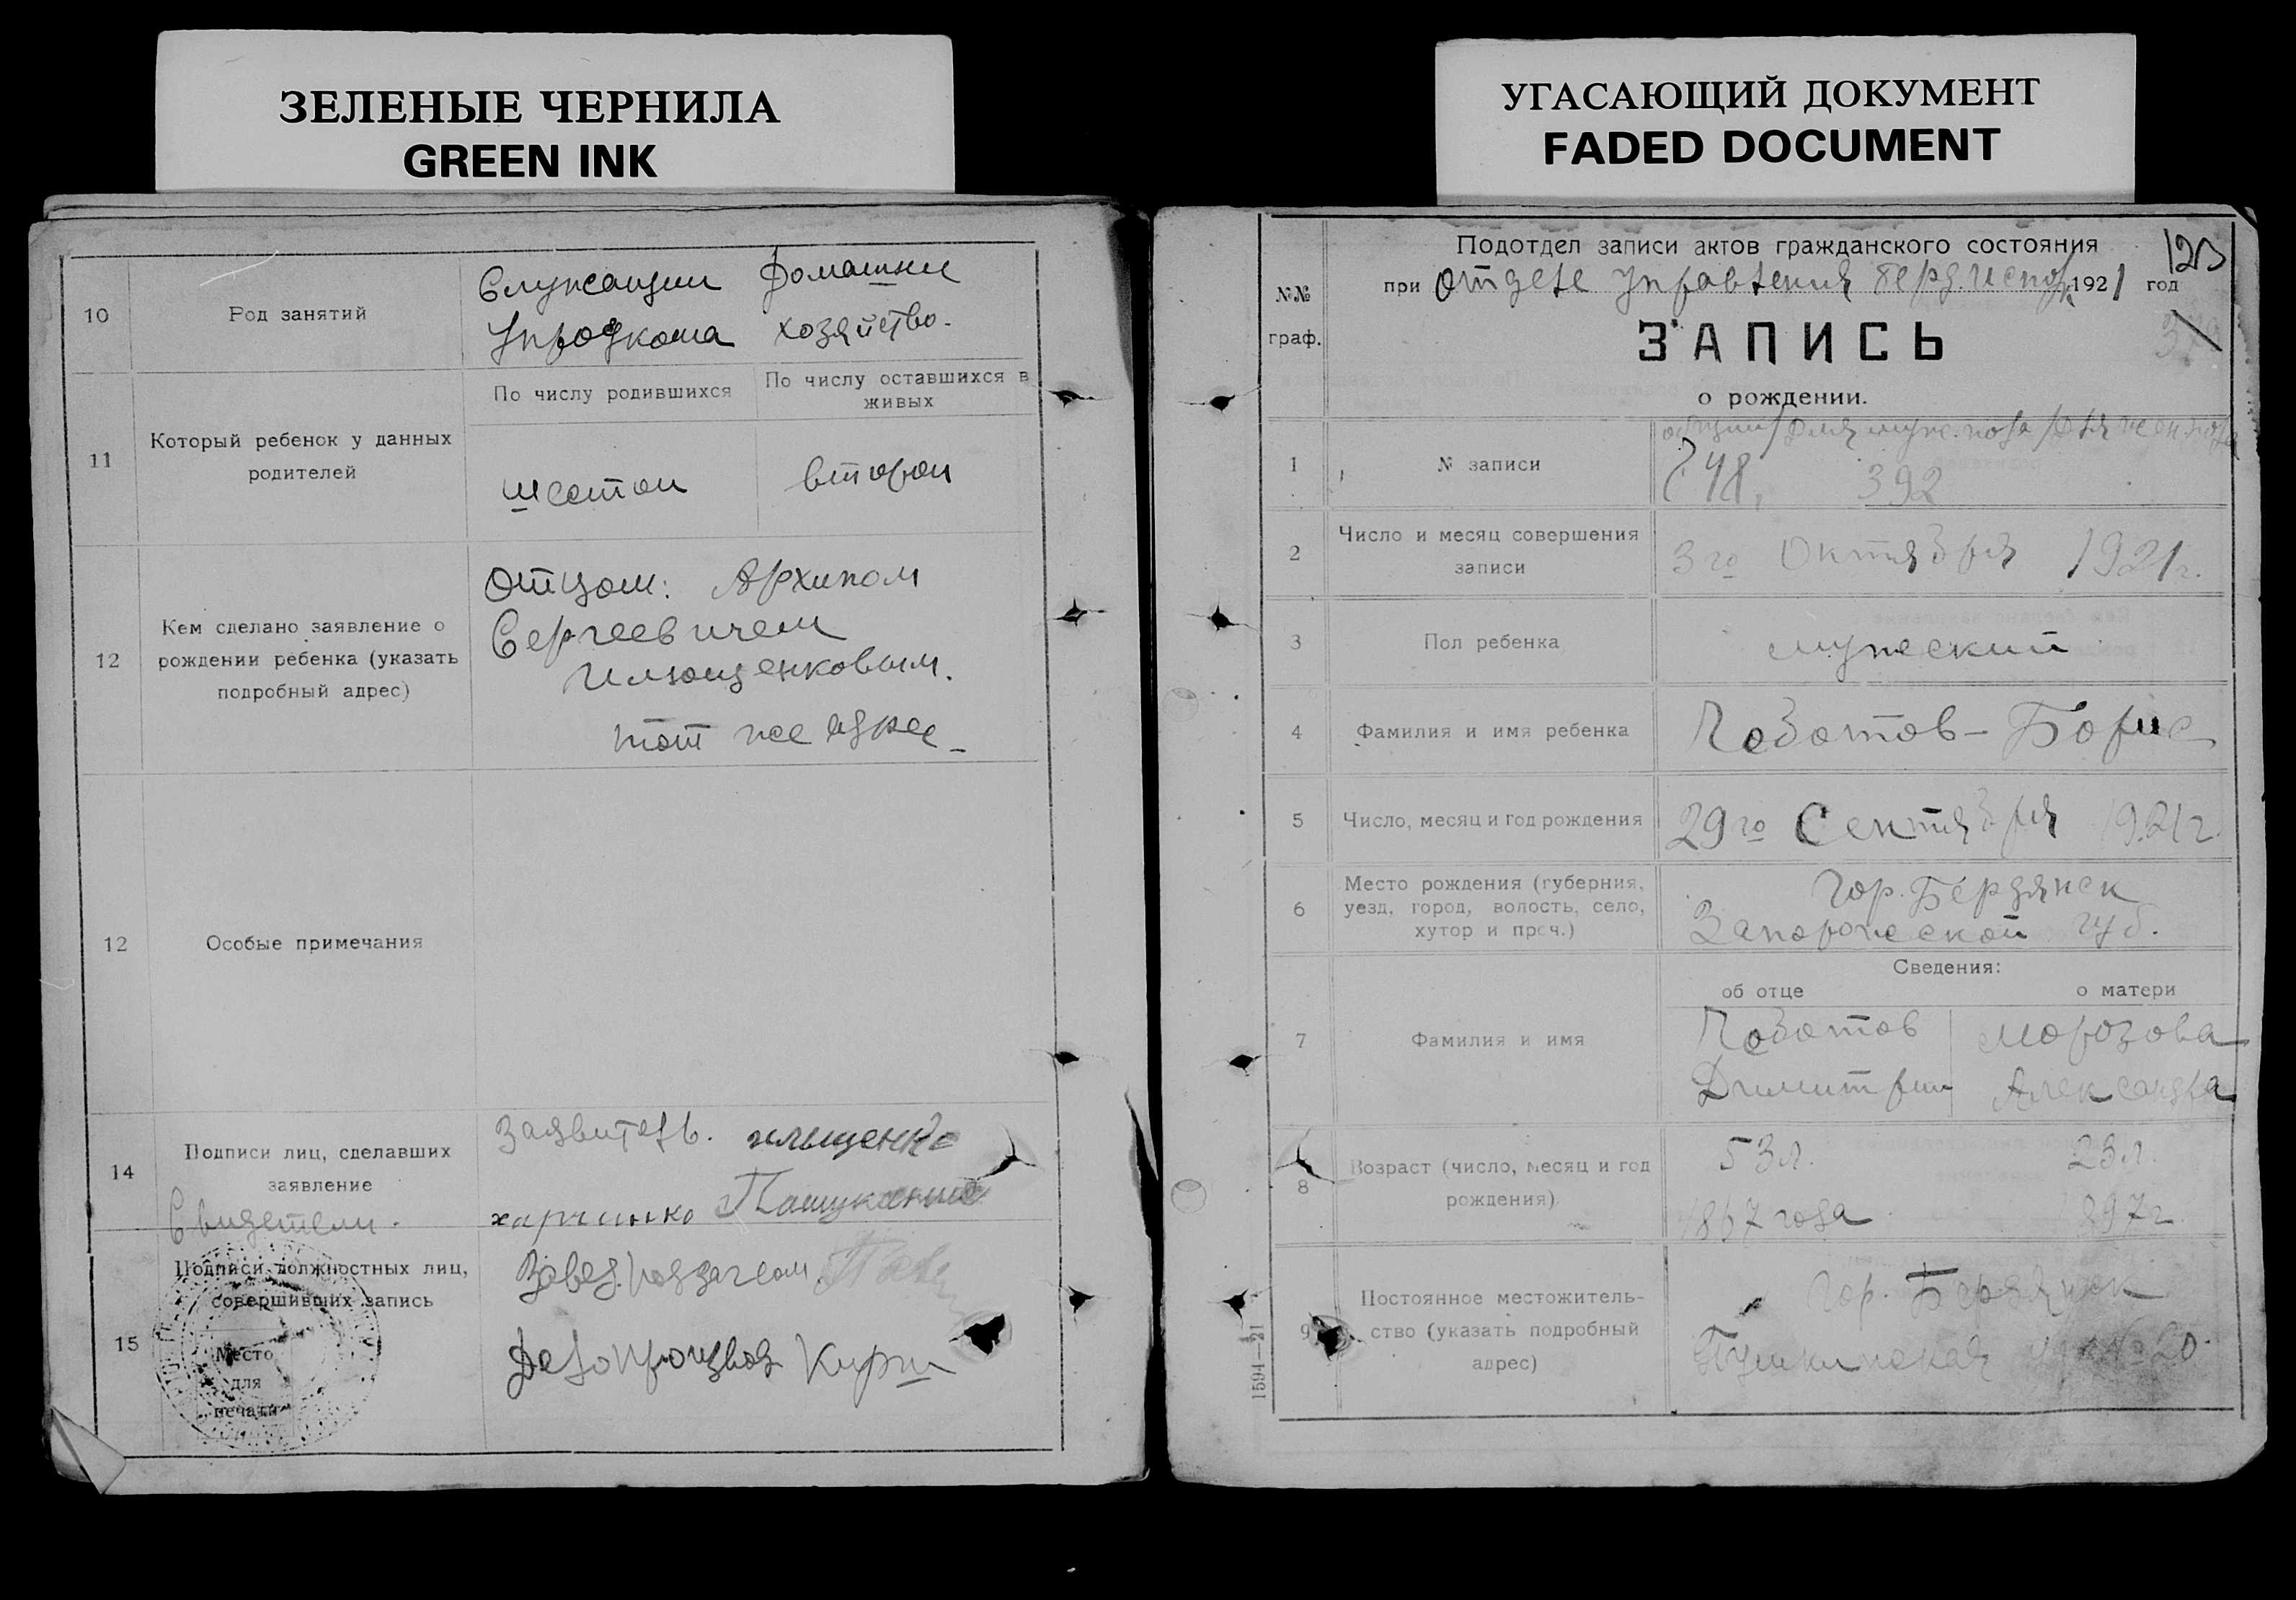 ЗЕЛЕНЫЕ ЧЕРНИЛА
GREEN INK
УГАСАЮЩИЙ ДОКУМЕНТ
FADED DOCUMENT
10
Род занятий
Служащий
Упродкома
Домашнее
хозяйство.
11
Который ребенок у данных
родителей
По числу родившихся
По числу оставшихся в
живых
шестой
второй
12
Кем сделано заявление о
рождении ребенка (указать
подробный адрес)
Отцом: Архипом
Сергеевичем
Илющенковым.
тот же адрес
12
Особые примечания
14
Подписи лиц, сделавших
заявление
Свидетели.
Заявитель.
15
Подписи должностных лиц,
совершивших запись
Место
для
печати
Завед. подзагсом
Делопроизвод
№№
граф.
Подотдел записи актов гражданского состояния
при Отделе Управления Берд. Испол 1921 год
123
ЗАПИСЬ
о рождении.
1
№ записи
общий / для муж. пола / для жен. пола
748,
392
2
Число и месяц совершения
записи
3го Октября 1921г.
3
Пол ребенка
мужеский
4
Фамилия и имя ребенка
Чоботов - Борис
5
Число, месяц и год рождения
29го Сентября 1921г.
6
Место рождения (губерния,
уезд, город, волость, село,
хутор и проч.)
Гор. Бердянск
Запорожской губ.
Сведения:
об отце
о матери
7
Фамилия и имя
Чоботов
Димитрий
Морозова
Александра
8
Возраст (число, месяц и год
рождения)
53л.
1867 года
23л.
1897г
9
Постоянное местожитель-
ство (указать подробный
адрес)
Гор. Бердянск
Пушкинская № 20.
1594—21